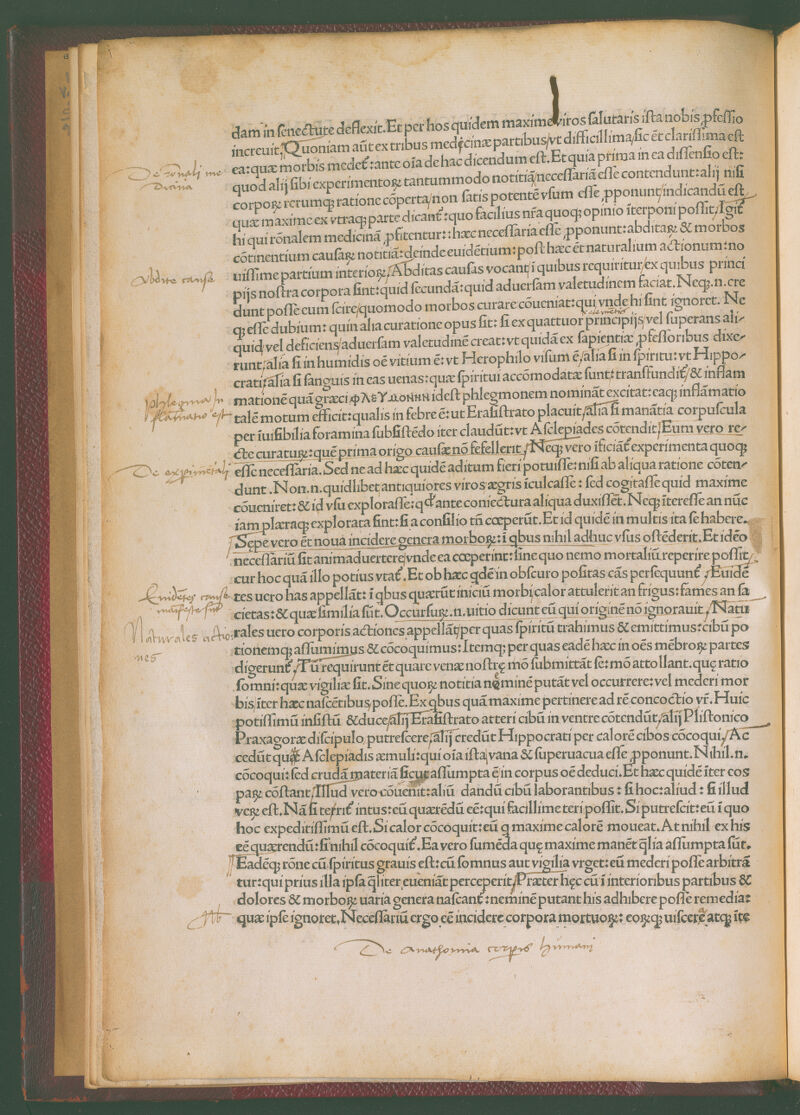 dam in ſenectute deflexit. Et per hos quidem maxime viros ſalutaris iſta nobis ꝓfeſſio
increuit. Quoniam aūt ex tribus medicinæ partibus/vt difficillima/ſic ēt clariſſima eſt
De rōnalj me
dicina
ea: quæ morbis medet᷑: ante oīa de hac dicendum eſt. Et quia prima in ea diſſenſio eſt:
quod alij ſibi experimentoꝝ tantummodo notitiā neceſſariā eſſe contendunt: alij niſi
corpoꝝ rerumqꝫ ratione cōperta/non ſatis potentē vſum eſſe ꝓponunt/indicandū eſt
quæ maxime ex vtraqꝫ parte dicant᷑: quo facilius nr̄a quoqꝫ opinio īterponi poſſit. Igit᷑
hi qui rōnalem medicinā ꝓfitentur: hæc neceſſaria eſſe ꝓponunt: abditaꝝ & morbos
cōtinentium cauſaꝝ notitiā: deinde euidētium: poſt hæc ēt naturalium actionum: no
Abdite cause
uiſſime partium interioꝝ. Abditas cauſas vocant ī quibus requiritur/ex quibus princi
pijs noſtra corpora ſint: quid ſecundā: quid aduerſam valetudinem faciat. Neqꝫ.n. cre
dunt poſſe eum ſcire/quomodo morbos curare cōueniat: qui vnde hi ſint ignoret. Ne
qꝫ eſſe dubium: quin alia curatione opus ſit: ſi ex quattuor principijs vel ſuperans ali⸗
quid/vel deficiens/aduerſam valetudinē creat: vt quidā ex ſapientiæ ꝓfeſſoribus dixe⸗
runt: alia ſi in humidis oē vitium ē: vt Herophilo viſum ē/alia ſi in ſpiritu: vt Hippo⸗
crati: alia ſi ſanguis in eas uenas: quæ ſpiritui accōmodatæ ſunt: tranſfundit᷑/& inflam
phlegmon In
flamatio est
mationē quā græci φλεγμονην ideſt phlegmonem nomināt excitat: eaqꝫ inflāmatio
talē motum efficit: qualis in febre ē: ut Eraſiſtrato placuit/alia ſi manātia corpuſcula
per iuiſibilia foramina ſubſiſtēdo iter claudūt: vt Aſclepiades cōtendit. Eum vero re⸗
cte curaturꝫ: quē prima origo cauſæ nō fefellerit. Neqꝫ vero īficiāt᷑ experimenta quoqꝫ
De experimētalj
eſſe neceſſaria. Sed ne ad hæc quidē aditum fieri potuiſſe: niſi ab aliqua ratione cōten⸗
dunt. Non.n. quidlibet antiquiores viros ægris īculcaſſe: ſed cogitaſſe quid maxime
cōueniret: & id vſu exploraſſe: qd̓ ante coniectura aliqua duxiſſēt. Neqꝫ īter eſſe an nūc
iam plæraqꝫ explorata ſint: ſi a conſilio tn̄ cœperūt. Et id quidē in multis ita ſe habere.
Sepe vero ēt noua incidere genera morboꝝ: ī qbus nihil adhuc vſus oſtēderit. Et ideo
neceſſariū ſit animaduertere/vnde ea cœperint: ſine quo nemo mortaliū reperire poſſit
cur hoc quā illo potius vtat᷑. Et ob hæc qdē in obſcuro poſitas cās perſequunt᷑. Euidē
Euidētes cause
manifeste sunt
tes uero has appellāt: ī qbus quærūt iniciū morbi calor attulerit an frigus: fames an ſa
cietas: & quæ ſimilia ſūt. Occurſuꝝ.n. uitio dicunt eū qui originē nō ignorauit. Natu
Naturales actio
nes
rales uero corporis actiones appellāt/per quas ſpiritū trahimus & emittimus: cibū po
tionemqꝫ aſſumimus & cōcoquimus: Itemqꝫ per quas eadē hæc in oēs mēbroꝝ partes
digerunt᷑. Tū requirunt ēt quare venæ noſtrę mō ſubmittāt ſe: mō attollant. quę ratio
ſomni: quæ vigiliæ ſit. Sine quoꝝ notitia neminē putāt vel occurrere: vel mederi mor
bis iter hæc naſcētibus poſſe. Ex qbus quā maxime pertinere ad rē concoctio vr̄. Huic
potiſſimū inſiſtū & duce/alij Eraſiſtrato atteri cibū in ventre cōtendūt/alij Pliſtonico
Praxagoræ diſcipulo putreſcere/alij credūt Hippocrati per calorē cibos cōcoqui. Ac
cedūt quæ Aſclepiadis æmuli: qui oīa iſta vana & ſuperuacua eſſe ꝓponunt. Nihil.n.
cōcoqui: ſed crudā materiā ſicut aſſumpta ē in corpus oē deduci. Et hæc quidē īter eos
paꝝ cōſtant. Illud vero cōuenit: aliū dandū cibū laborantibus: ſi hoc: aliud: ſi illud
veꝝ eſt. Nā ſi terit᷑ intus: eū quærēdū eē: qui facillime teri poſſit. Si putreſcit: eū ī quo
hoc expeditiſſimū eſt. Si calor cōcoquit: eū q maxime calorē moueat. At nihil ex his
eē quærendū: ſi nihil cōcoquit᷑. Ea vero ſumēda quę maxime manēt qlia aſſumpta ſūt.
Eadēqꝫ rōne cū ſpiritus grauis eſt: cū ſomnus aut vigilia vrget: eū mederi poſſe arbitrā
tur: qui prius illa ipſa qliter eueniāt perceperit. Præter hęc cū ī interioribus partibus &
dolores & morboꝝ uaria genera naſcant᷑: neminē putant his adhibere poſſe remedia:
Nota
quæ ipſe ignoret. Neceſſariū ergo eē incidere corpora mortuoꝝ: eoꝝqꝫ uiſcera atqꝫ īte
De anathomia corporis humani